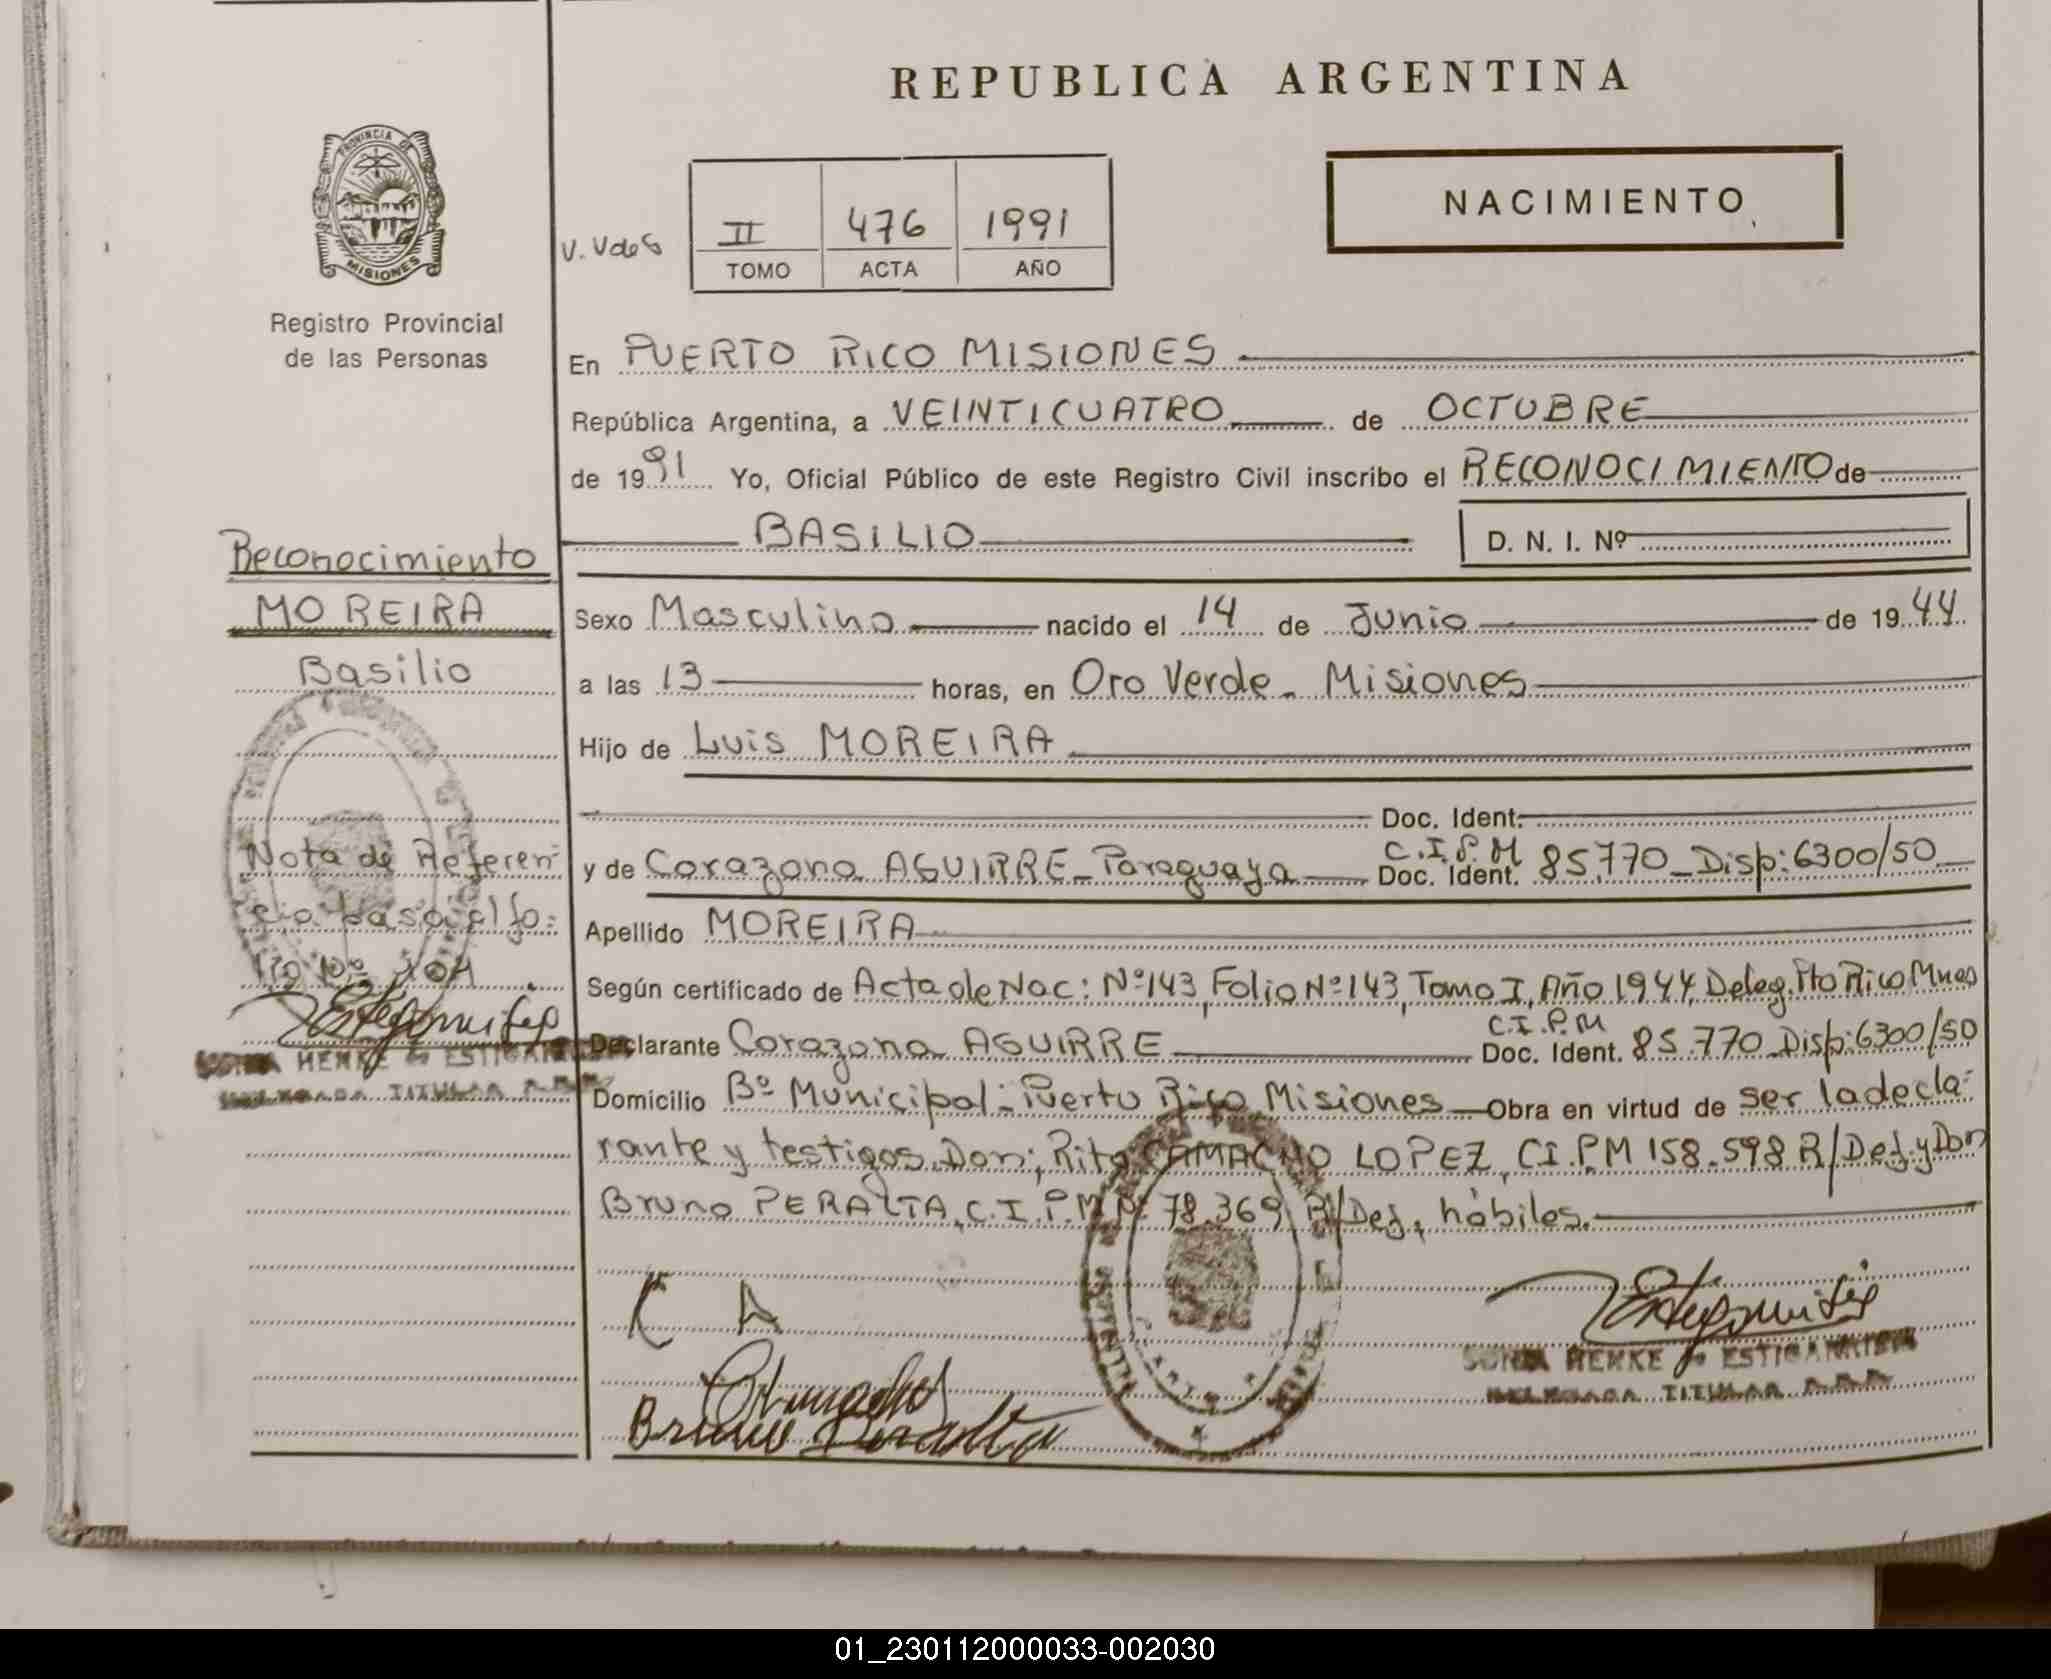 REPUBLICA ARGENTINA
PROVINCIA DE
MISIONES
Registro Provincial
de las Personas
NACIMIENTO
II 476 1991
TOMO ACTA AÑO
En PUERTO RICO MISIONES
República Argentina, a VEINTICUATRO de OCTUBRE
de 1991 Yo, Oficial Público de este Registro Civil inscribo el RECONOCIMIENTO de
BASILIO D. N. I. Nº
Reconocimiento
MOREIRA
Basilio
Sexo Masculino nacido el 14 de Junio de 1944
a las 13 horas, en Oro Verde - Misiones
Hijo de Luis MOREIRA
Doc. Ident.
C.I.P.M
y de Corazona AGUIRRE - Paraguaya Doc. Ident. 85.770 - Disp: 6300/50
Apellido MOREIRA
Según certificado de Acta de Nac: Nº 143, Folio Nº 143, Tomo I, Año 1944, Deleg. Pto Rico Mnes
C.I.P.M
Declarante Corazona AGUIRRE Doc. Ident. 85.770 Disp: 6300/50
Domicilio Bº Municipal - Puerto Rico Misiones Obra en virtud de ser la decla-
rante y testigos Don; Rito CAMACHO LOPEZ, CI.P.M 158.598 R/Def. y Don
Bruno PERALTA, C.I.P.M Nº 78.369 R/Def, hábiles.
Nota de Referen
cia pasa al fo-
lio Nº
C A
Bruno Peralta
SONIA HENKE de ESTIGARRIBIA
DELEGADA TITULAR
SONIA HENKE de ESTIGARRIBIA
DELEGADA TITULAR
01_230112000033-002030